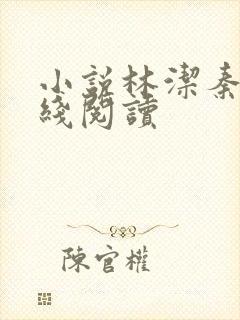 小説林潔秦
綫閱讀
陳官權